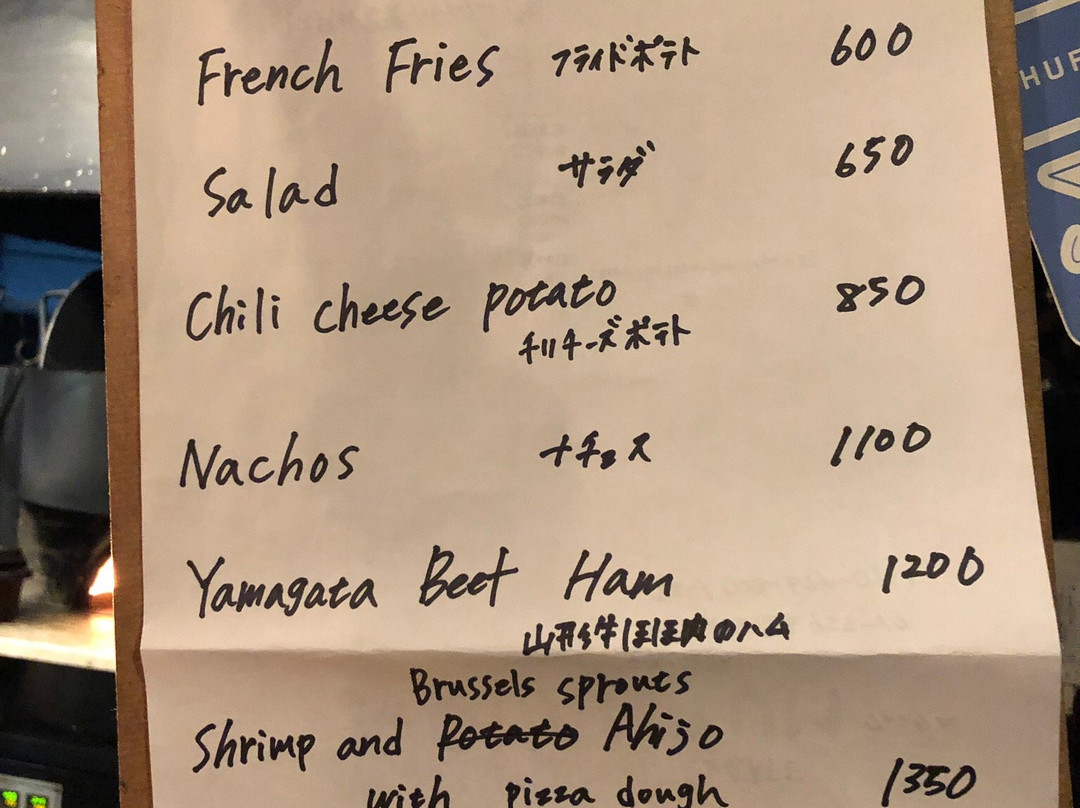 French Fries フライドポテト 600
Salad サラダ 650
Chili cheese potato 850
チリチーズポテト
Nachos ナチョス 1100
Yamagata Beef Ham 1200
山形牛ほほ肉のハム
Brussels sprouts
Shrimp and Potato Ahijo
with pizza dough 1350